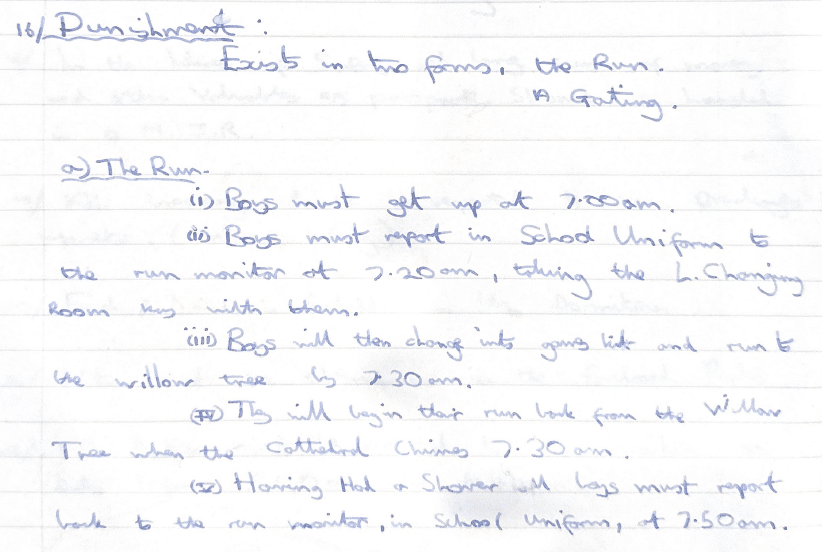 16/ Punishment:
Exists in two forms, the Run.
A Gating.
a) The Run-
(i) Boys must get up at 7.00am.
(ii) Boys must report in School Uniform to
the run monitor at 7.20am, taking the L. Changing
Room key with them.
(iii) Boys will then change into games kit and run to
the willow tree by 7.30am.
(IV) They will begin their run back from the Willow
Tree when the Cathedral Chimes 7.30am.
(V) Having Had a Shower all boys must report
back to the run monitor, in School Uniform, at 7.50am.